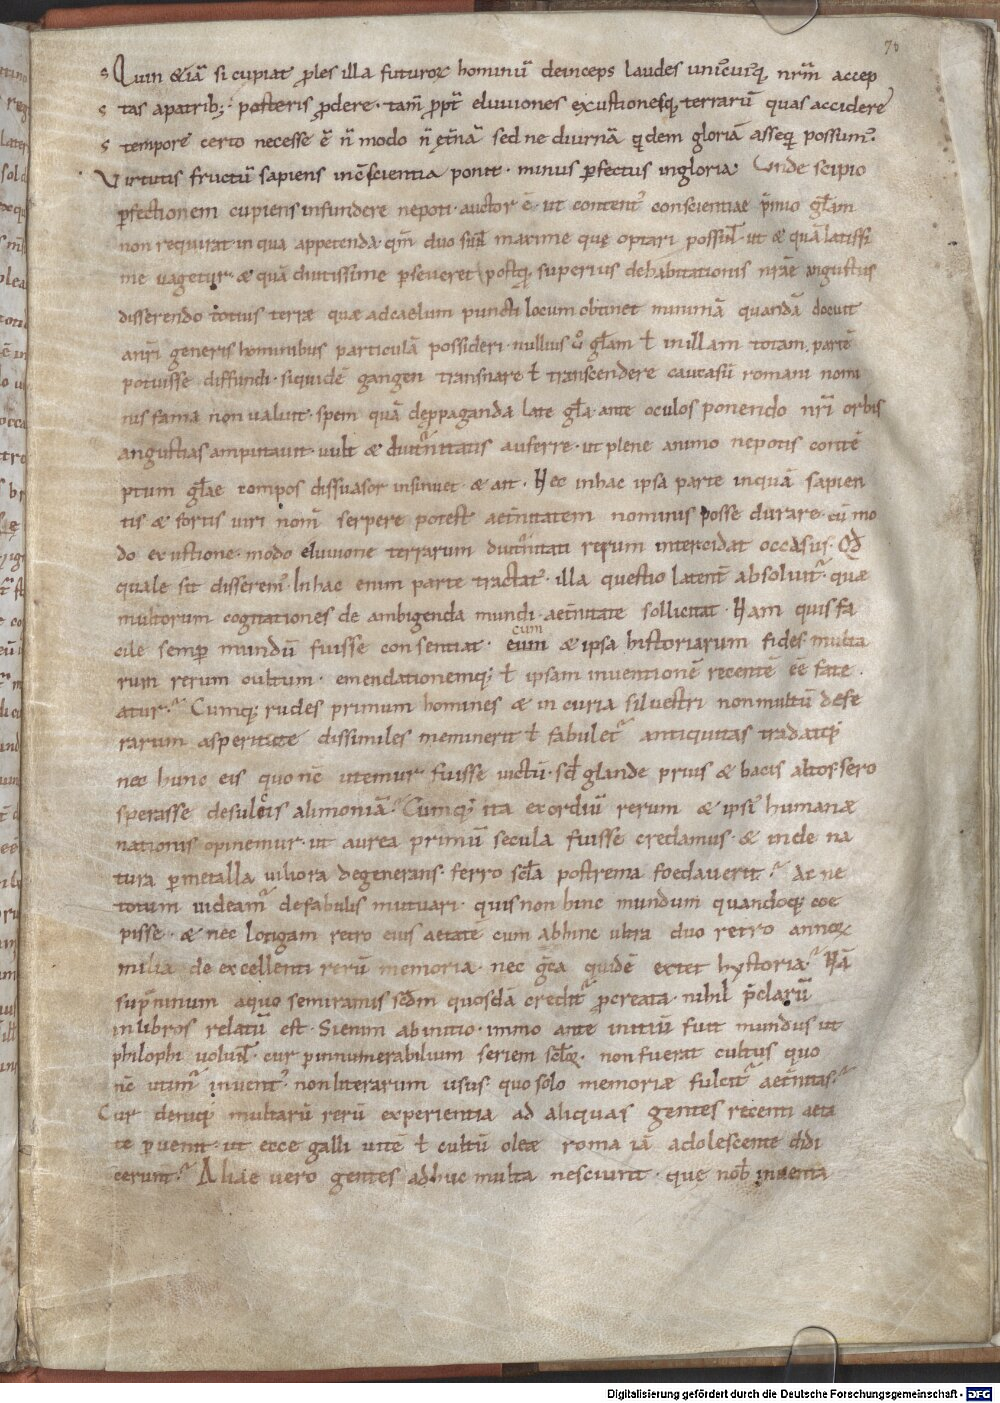 70
s Quin &iā si cupiat p̄les illa futuroꝝ hominū deinceps laudes uniꝰcuiꝰq; nr̄m accep
s tas apatrib; · posteris p̄dere · tam̄ pp̄t eluuiones exustionesq; terrarū quas accidere
s tempore certo necesse ē n̄ modo n̄ ęt̄nā sed ne diurnā q̄dem gloriā asseq̄ possumꝰ.
Virtutis fructū sapiens inc̄scientia ponit · minus p̄fectus ingloria · Unde scipio
p̄fectionem cupiens infundere nepoti · auctor ē · ut contentꝰ conscientiae p̄mio gl̄am
non requirat · in qua appetenda · qm̄ duo sunt maxime que optari possunt · ut & quā latissi
me uagetur · & quā diutissime p̄seueret · postq̄ superius dehabitationis nr̄ae angustiis
disserendo totius terrae quae adcaelum puncti locum obtinet minimā quandā docuit
anr̄i generis hominibus particulā possideri · nullius u͛o gl̄am ł inillam totam partē
potuisse diffundi · siquidē gangen transnare ł transcendere caucasū romani nomi
nis fama non ualuit · spem quā dep̄paganda late gl̄a ante oculos ponendo nr̄i orbis
angustias amputauit · uult & diuturnitatis auferre · ut plene animo nepotis contē
ptum gl̄ae compos dissuasor insinuet · & ait · Nec inhac ipsa parte inquā sapien
tis & fortis uiri nom̄ serpere potest aet̄nitatem nominis posse durare · cū mo
do exustione · modo eluuione terrarum diuturnitati rerum intercidat occasus · Qd̄
quale sit disseremꝰ · Inhac enim parte tractatꝰ · illa questio latent̄ absoluit᷑ · quae
multorum cogitationes de ambigenda mundi aet̄nitate sollicitat · Nam quis fa
cile semp̄ mundū fuisse consentiat ·
cum
cum & ipsa historiarum fides multa
rum rerum cultum · emendationemq; ł ipsam inuentionē recentē eē fate
atur · Cumq; rudes primum homines & incuria siluestri nonmultū defe
rarum asperitate dissimiles meminerit ł fabulet᷑ antiquitas tradatq;
nec hunc eis quo nc̄ utemur fuisse uictū · sed glande prius & bacis altos · sero
sperasse desulcis alimoniā · Cumq; ita exordiū rerum & ipsiꝰ humanae
nationis opinemur · ut aurea primū secula fuisse credamus · & inde na
tura p̄metalla uiliora degenerans · ferro scl̄a postrema foedauerit · Ac ne
totum uideam᷑ defabulis mutuari · quis non hinc mundum quandoq; coe
pisse · & nec longam retro eius aetatē cum abhinc ultra duo retro annoꝝ
milia de excellenti rerū memoria · nec gr̄ca quidē extet hystoria · Nā
sup̄ninum aquo semiramis sc̄dm quosdā credit᷑ p̄creata · nihil p̄clarū
inlibros relatū est · Sienim abinitio · immo ante initiū fuit mundus ut
philophi uolunt · cur p̄innumerabilium seriem scl̄oꝝ · non fuerat cultus quo
nc̄ utim᷑ inuentꝰ · nonliterarum usus · quo solo memoriae fulcit᷑ aet̄nitas ·
Cur deniq; multarū rerū experientia ad aliquas gentes recenti aeta
te p̄uenit · ut ecce galli uitē ł cultū oleae roma iā adolescente didi
cerunt · Aliae uero gentes adhuc multa nesciunt · que nob̄ inuenta
Digitalisierung gefördert durch die Deutsche Forschungsgemeinschaft - DFG